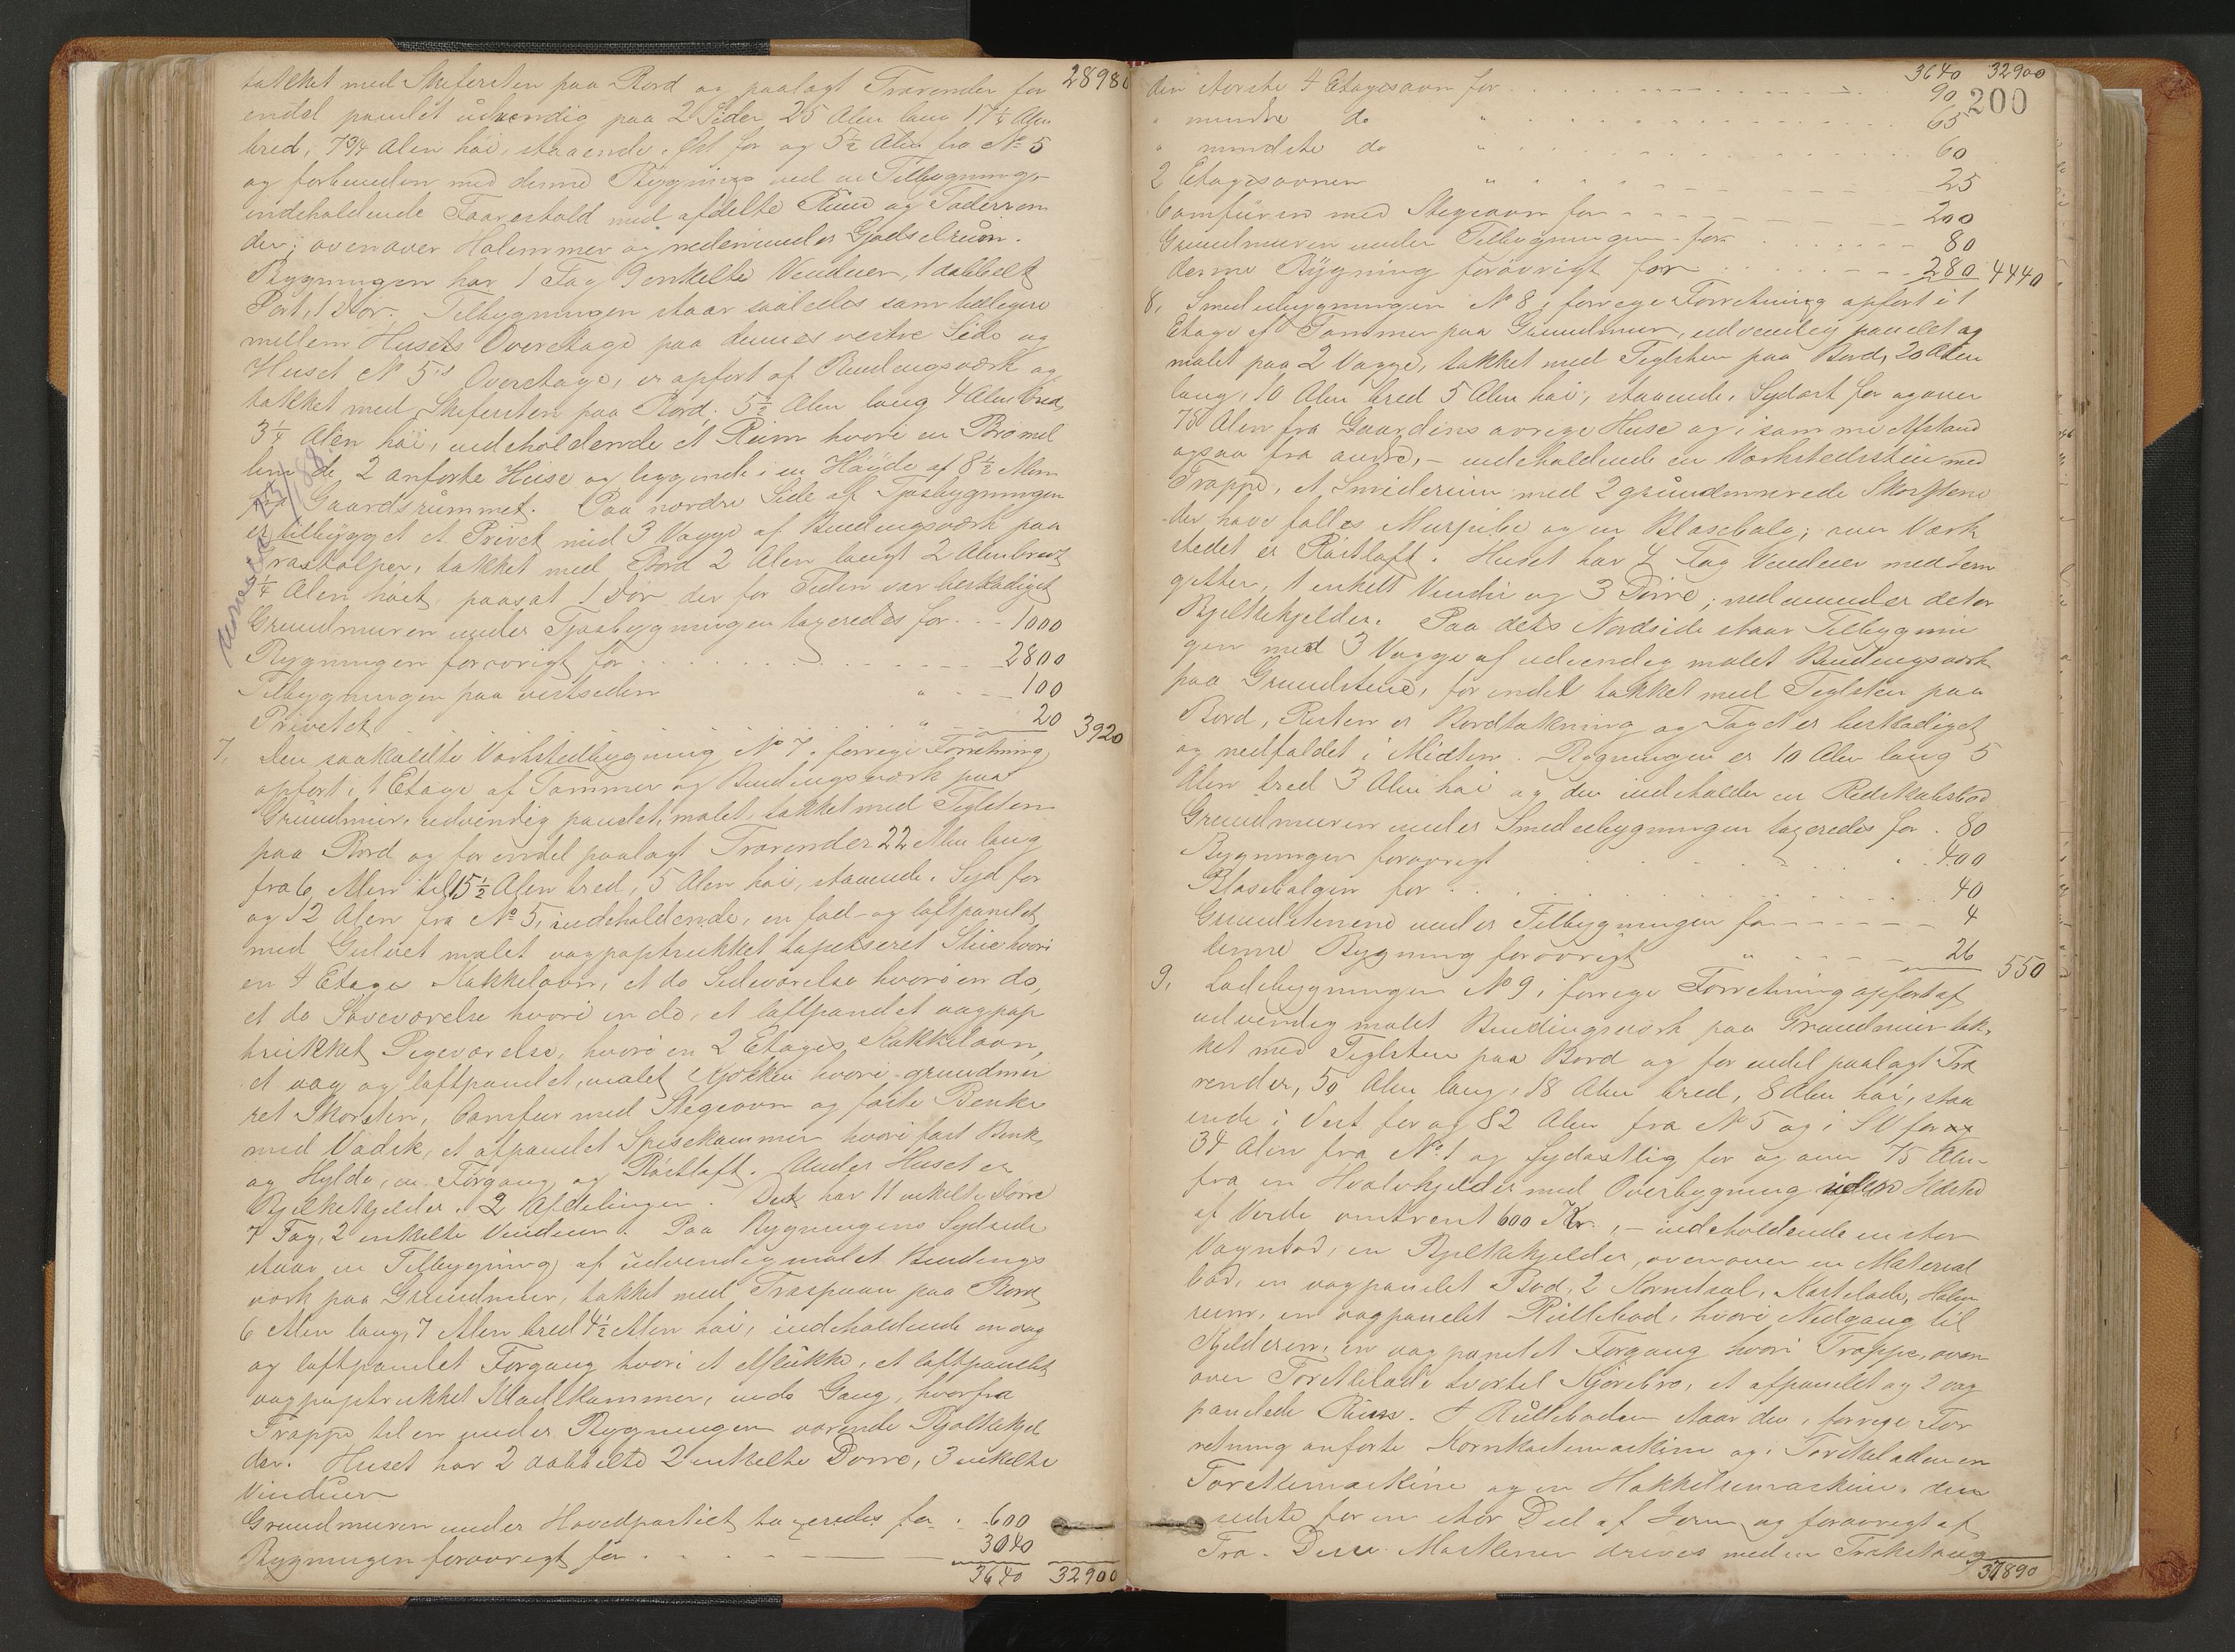 takket med Skifersten paa Bord og paalagt Trærender for 28980
endel panelet udvendig paa 2 Sider, 25 Alen lang 17½ Alen
bred, 7¾ Alen høi, staaende i Øst for og 5½ Alen fra No 5
og forbunden med denne Bygning ved en Tilbygning,
indeholdende Faarestald med afdelte Rum og Foderren
der, ovenover Halmrum og nedenunder Gjødselrum.
Bygningen har 1 Fag 9 enkelte Vinduer, 1 dobbelt
Port, 1 Dør. Tilbygningen staar saaledes som tidligere
mellem Husets Overetage paa dennes vestre Side og
Huset No 5's Overetage, er opført af Bindingsværk og
tækket med Skifersten paa Bord, 5½ Alen lang 4 Alen bred
3¼ Alen høi, indeholdende et Rum hvori en Bro mel
lem de 2 anførte Huse og liggende i en Høyde af 8½ Alen
fra Gaardsrummet. Paa nordre Side af Fjøsbygningen
er tilbygget et Privet med 3 Vægge af Bindingsværk paa
Træstolper, takket med Bord 2 Alen langt 2 Alen bredt
¼ Alen høit, paasat 1 Dør der for Tiden var beskadiget
Grundmuren under Fjøsbygningen taxeredes for - - 1000
Bygningen forøvrigt for 2800
Tilbygningen paa vestsiden " 100
Privetet " 20 3920
7, Den saakaldte Værkstedbygning No 7 i forrige Forretning
opført i 1 Etage af Tømmer og Bindingsværk paa
Grundmur, udvendig panelet, malet, takket med Teglsten
paa Bord og for endel paalagt Trærender 22 Alen lang
fra 6 Alen til 15½ Alen bred, 5 Alen høi, staaende i Syd for
og 12 Alen fra No 5, indeholdende, en fod- og loftpanelet
med Gulvet malet vægpaptrukket tapetseret Stue hvori
en 4 Etages Kakkelovn, et do Sideværelse hvori en do,
et do Soveværelse hvori en do, et loftpanelet vægpap
trukket Pigeværelse, hvori en 2 Etages Kakkelovn,
et væg og loftpanelet, malet Kjøkken hvori grundmu
ret Skorsten, Comfur med Stegeovn og faste Benke
med Vadsk, et afpanelet Spisekammer hvori fast Benk
og Hylde, en Forgang og Røstloft. Under Huset er
Bjelkekjelder i 2 Afdelinger. Det har 11 enkelte Dørre
7 Fag, 2 enkelte Vinduer. Paa Bygningens Sydside
staar en Tilbygning af udvendig malet Bindings
værk paa Grundmur, takket med Træspaan paa Bord
6 Alen lang, 7 Alen bred 4½ Alen høi, indeholdende en væg
og loftpanelet Forgang hvori et Aflukke, et loftpanelet
vægpaptrukket Madkammer, endo Gang, hvorfra
Trappe til en under Bygningen værende Bjelkekjel
der. Huset har 2 dobbelte 2 enkelte Dørre, 3 enkelte
Vinduer
Grundmuren under Hovedpartiet taxeredes for . 600
Bygningen forøvrigt for . 3040
3640 32900
3640 32900
200
den største 4 Etagesovn for 90
" mindre do " 65
" mindste do " 60
2 Etagesovnen " 25
Comfuren med Stegeovn for 200
Grundmuren under Tilbygningen for 80
denne Bygning forøvrigt for 280 4440
8, Smediebygningen No 8 i forrige Forretning opført i 1
Etage af Tømmer paa Grundmur, udvendig panelet og
malet paa 2 Vægge, takket med Teglsten paa Bord, 20 Alen
lang, 10 Alen bred 5 Alen høi, staaende i Sydøst for og over
75 Alen fra Gaardens øvrige Huse og i samme Afstand
ogsaa fra andre, - indeholdende en Værkstedstue med
Trappe, et Smiderum med 2 grundmurede Skorstene
der have fælles Murpibe og en Blæsebælg; over Værk
stedet er Røstloft. Huset har 4 Fag Vinduer med Jern
gitter, 1 enkelt Vindu og 3 Dørre; nedenunder det er
Bjelkekjelder. Paa dets Nordside staar Tilbygnin
gen med 3 Vægge af udvendig malet Bindingsværk
paa Grundstene, for endel takket med Teglsten paa
Bord, Resten er Bordtakning og Taget er beskadiget
og nedfaldet i Midten. Bygningen er 10 Alen lang 5
Alen bred 3 Alen høi og den indeholder en Redskabsbod
Grundmuren under Smediebygningen taxeredes for . 80
Bygningen forøvrigt . 400
Blæsebælgen for 40
Grundstenene under Tilbygningen for 4
denne Bygning forøvrigt " 26 550
9, Ladebygningen No 9 i forrige Forretning opført af
udvendig malet Bindingsværk paa Grundmur tak,
ket med Teglsten paa Bord og for endel paalagt Træ
render, 50 Alen lang, 18 Alen bred, 8 Alen høi, staa
ende i Vest for og 82 Alen fra No 5 og i SV for
34 Alen fra No 1 og sydostlig for og over 75 Alen
fra en Hvælvkjelder med Overbygning uden Ildsted
af Værdi omtrent 600 Kr., - indeholdende en stor
Vognbod, en Bjelkekjelder, ovenover en Material
bod, en vægpanelet Bod, 2 Kornstaal, Kastelade, Halm
rum, en vægpanelet Rullebod, hvori Nedgang til
Kjelderen, en vægpanelet Forgang hvori Trappe, oven
over Tærskelade tvertil Kjørebro, et afpanelet og 2 væg
panelede Rum. I Rulleboden staar den i forrige For
retning anførte Kornkastemaskine og i Tærskeladen en
Tærskemaskine og en Hakkelsemaskine, den
sidste for en stor Del af Jern og forøvrigt af
Træ. Disse Maskiner drives med en Trækstang
37890